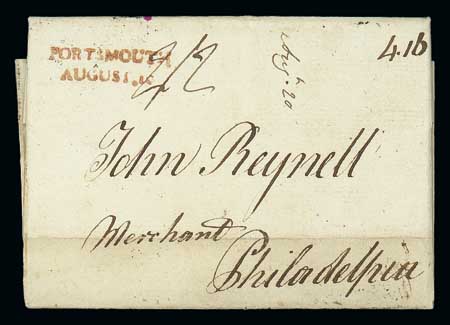 PORTSMOUTH
AUGUST.
2/2
Aug. 20
4.16
John Reynell
Merchant
Philadelpia